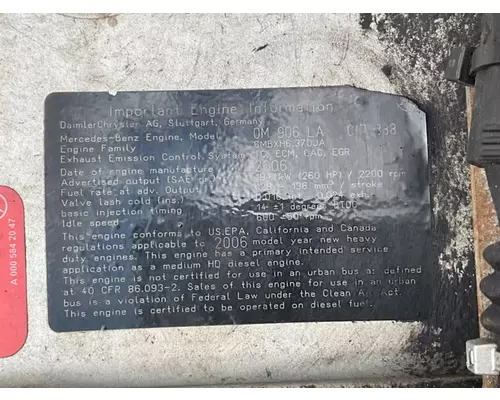 Important Engine Information
DaimlerChrysler AG, Stuttgart, Germany
Mercedes-Benz Engine, Model OM 906 LA
Engine Family 6MBXH6.37DJA
Exhaust Emission Control System ECM, CAC, EGR
Date of engine manufacture
Advertised output (SAE) (260 HP) / 2200 rpm
Fuel rate at adv. Output stroke
Valve lash cold (ins.)
basic injection timing 14 ±1 degree BTDC
Idle speed 600 rpm
This engine conforms to US.EPA, California and Canada
regulations applicable to 2006 model year new heavy
duty engines. This engine has a primary intended service
application as a medium HD diesel engine.
This engine is not certified for use in an urban bus as defined
at 40 CFR 86.093-2. Sales of this engine for use in an urban
bus is a violation of Federal Law under the Clean Air Act.
This engine is certified to be operated on diesel fuel.
A 000 584 20 47